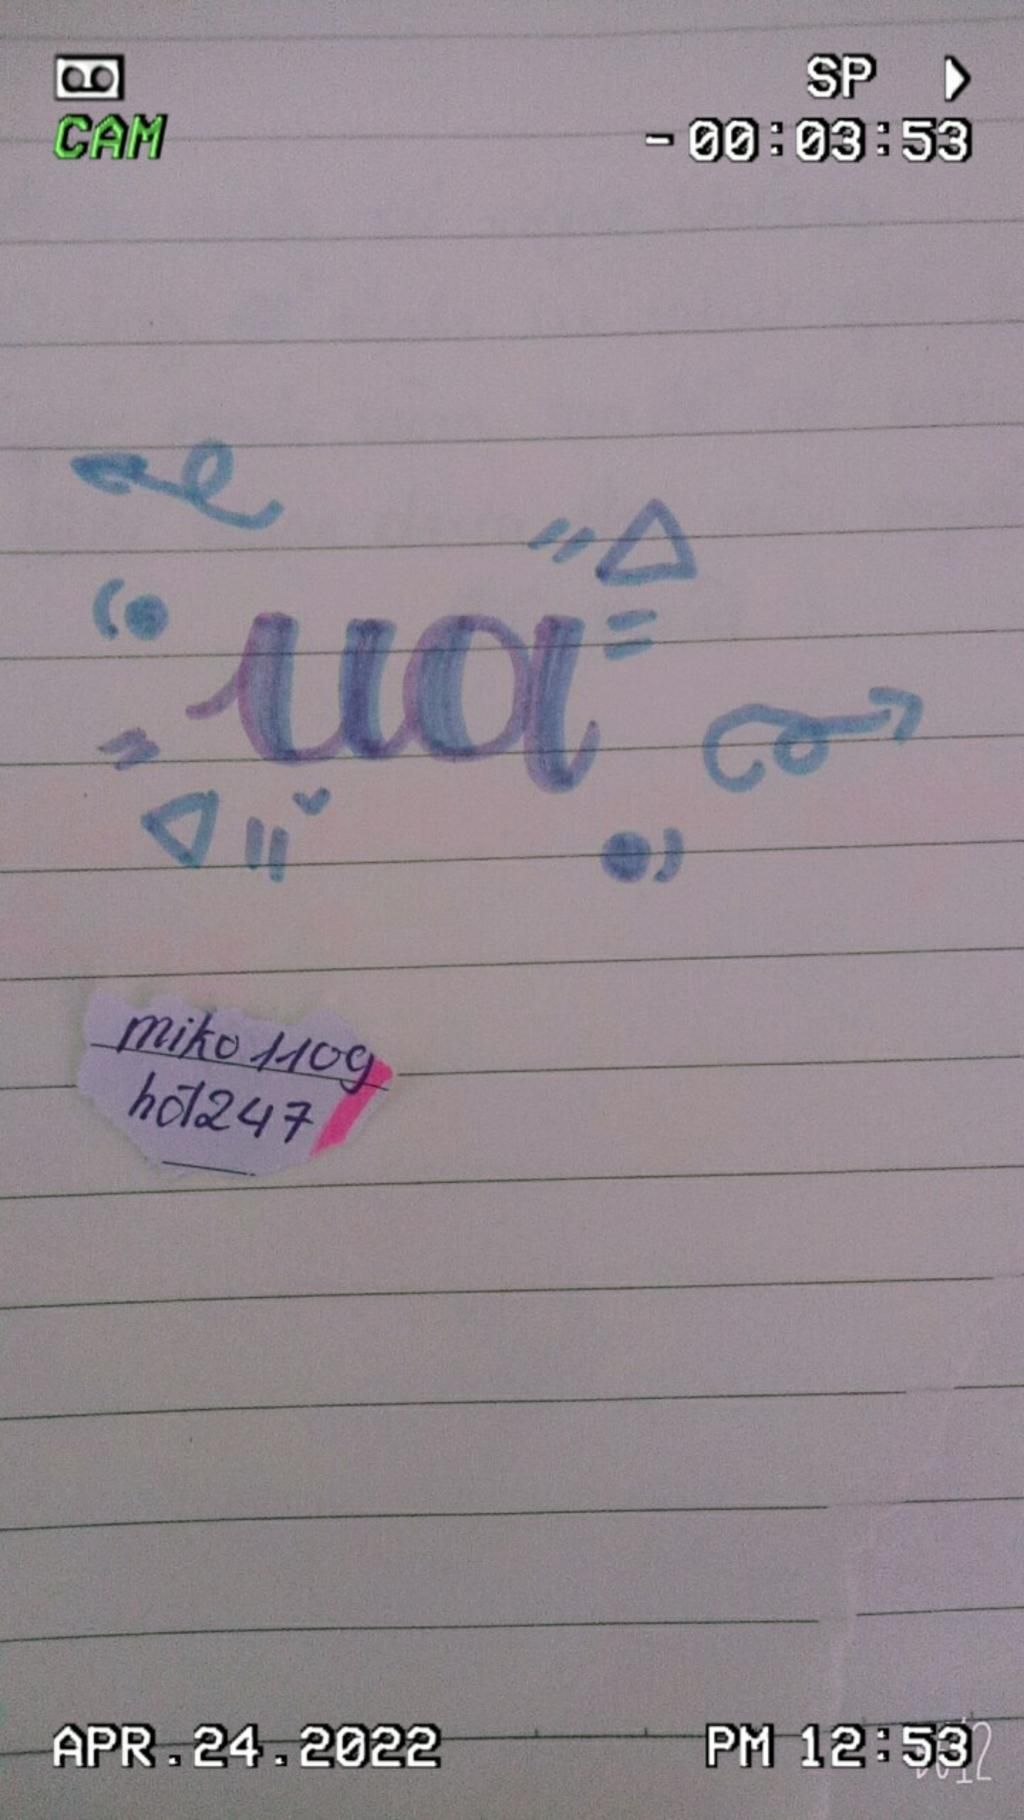 SP
CAM
-00:03:53
ua
miko 110g
hot247
APR.24.2022
PM 12:53